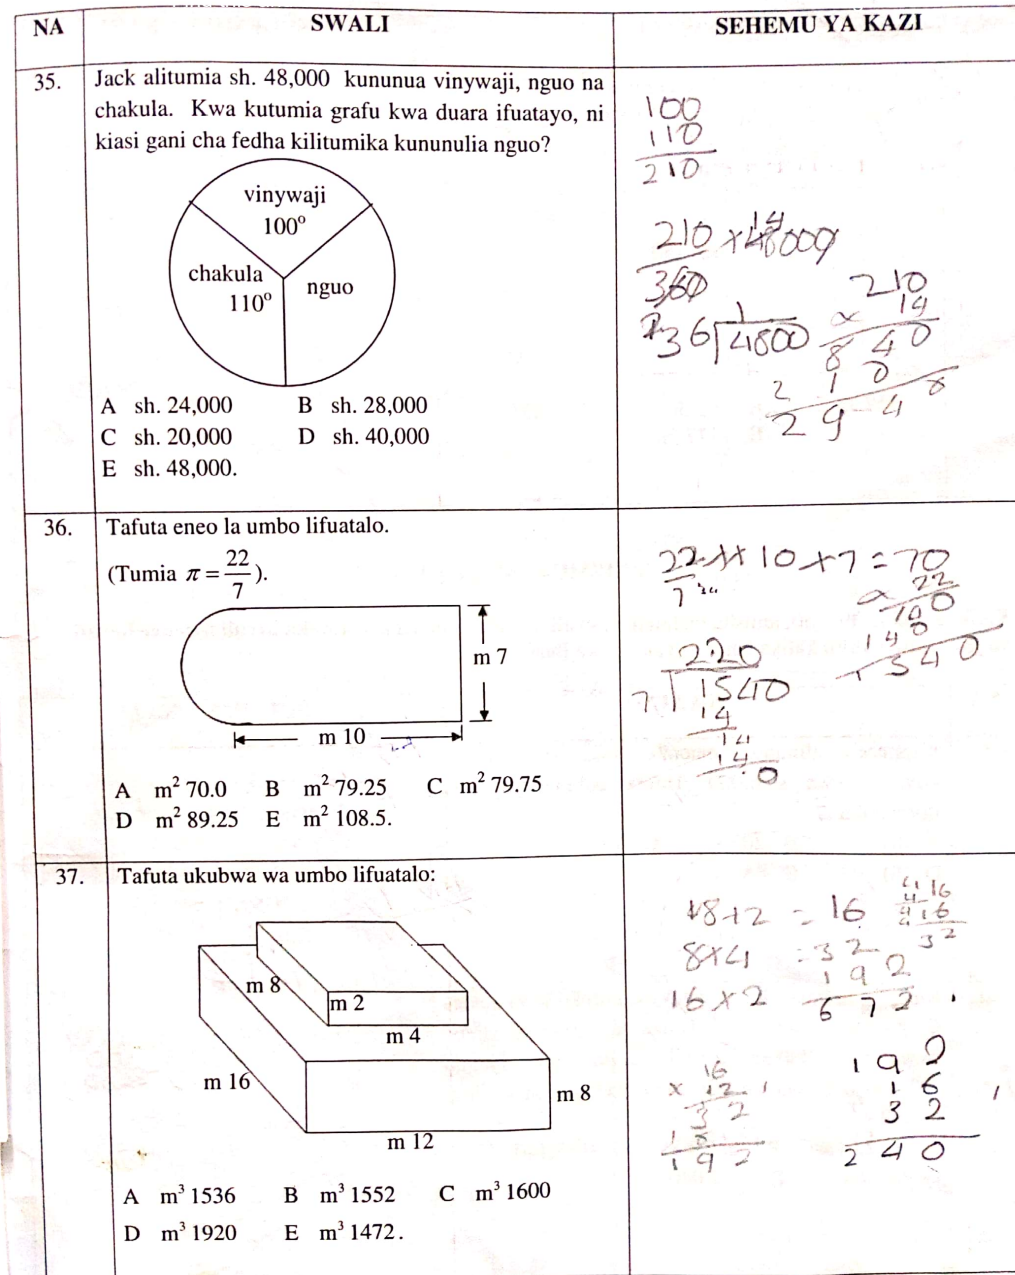 NA SWALI SEHEMU YA KAZI
35. Jack alitumia sh. 48,000 kununua vinywaji, nguo na
chakula. Kwa kutumia grafu kwa duara ifuatayo, ni
kiasi gani cha fedha kilitumika kununulia nguo?
vinywaji
100°
chakula
110°
nguo
A sh. 24,000 B sh. 28,000
C sh. 20,000 D sh. 40,000
E sh. 48,000.
100
110
210
210 × 48000
360
36 4800
1
210
14
840
210
2940
36. Tafuta eneo la umbo lifuatalo.
(Tumia π = 22/7).
m 7
m 10
A m² 70.0 B m² 79.25 C m² 79.75
D m² 89.25 E m² 108.5.
22/7 × 10 × 7 = 70
22
140
140
1540
220
7 1540
14
14
14
0
37. Tafuta ukubwa wa umbo lifuatalo:
m 8
m 2
m 4
m 16
m 8
m 12
A m³ 1536 B m³ 1552 C m³ 1600
D m³ 1920 E m³ 1472.
= 16
8×4 = 32
16 × 2
192
672
16
16
32
16
× 12
32
192
192
16
32
240